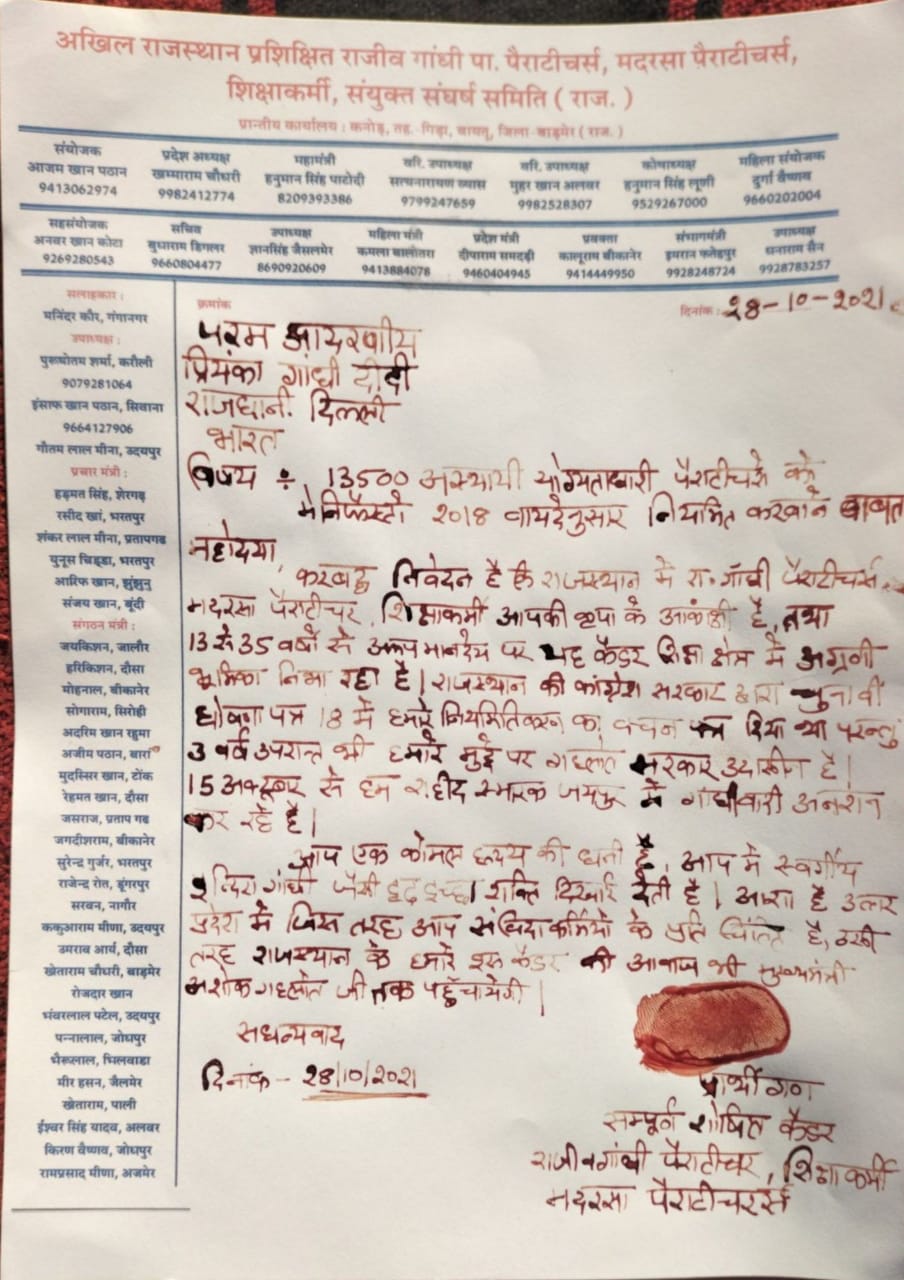 अखिल राजस्थान प्रशिक्षित राजीव गांधी पा. पैराटीचर्स, मदरसा पैराटीचर्स,
शिक्षाकर्मी, संयुक्त संघर्ष समिति ( राज. )
प्रान्तीय कार्यालय : कनोड़, तह. गिड़ा, बायतू, जिला-बाड़मेर ( राज. )
संयोजक
आजम खान पठान
9413062974
प्रदेश अध्यक्ष
खम्माराम चौधरी
9982412774
महामंत्री
हनुमान सिंह पाटोदी
8209393386
वरि. उपाध्यक्ष
सत्यनारायण व्यास
9799247659
वरि. उपाध्यक्ष
मुहर खान अलवर
9982528307
कोषाध्यक्ष
हनुमान सिंह लूणी
9529267000
महिला संयोजक
दुर्गा वैष्णव
9660202004
सहसंयोजक
अनवर खान कोटा
9269280543
सचिव
बुधाराम डिगलर
9660804477
उपाध्यक्ष
ज्ञानसिंह जैसलमेर
8690920609
महिला मंत्री
कमला बालोतरा
9413884078
प्रदेश मंत्री
दीपाराम समदड़ी
9460404945
प्रवक्ता
कालूराम बीकानेर
9414449950
संभागमंत्री
इमरान फतेहपुर
9928248724
उपाध्यक्ष
धनाराम सैन
9928783257
सलाहकार :
मनिंदर कौर, गंगानगर
उपाध्यक्ष :
पुरूषोतम शर्मा, करौली
9079281064
इंसाफ खान पठान, सिवाना
9664127906
गौतम लाल मीना, उदयपुर
प्रचार मंत्री :
हड़मत सिंह, शेरगढ़
रसीद खां, भरतपुर
शंकर लाल मीना, प्रतापगढ
युनूस चिड्डा, भरतपुर
आरिफ खान, झुंझुनु
संजय खान, बूंदी
संगठन मंत्री :
जयकिशन, जालौर
हरिकिशन, दौसा
मोहनाल, बीकानेर
सोगाराम, सिरोही
अदरिम खान रहुमा
अजीम पठान, बारां
मुदस्सिर खान, टोंक
रेहमत खान, दौसा
जसराज, प्रताप गढ
जगदीशराम, बीकानेर
सुरेन्द्र गुर्जर, भरतपुर
राजेन्द्र रोत, डूंगरपुर
सरवन, नागौर
ककुआराम मीणा, उदयपुर
उमराव आर्य, दौसा
खेताराम चौधरी, बाड़मेर
रोजदार खान
भंवरलाल पटेल, उदयपुर
पन्नालाल, जोधपुर
भैरूलाल, भिलवाडा
मीर हसन, जैलमेर
खेताराम, पाली
ईश्वर सिंह यादव, अलवर
किरण वैष्णव, जोधपुर
रामप्रसाद मीणा, अजमेर
क्रमांक
दिनांक : 28-10-2021
परम आदरणीय
प्रियंका गांधी दीदी
राजधानी दिल्ली
भारत
विषय ÷ 13500 अस्थायी योग्यताधारी पैराटीचर्स को
मेनिफेस्टो 2018 वायदेनुसार नियमित करवाने बाबत
महोदया,
करबद्ध निवेदन है कि राजस्थान मे रा. गाँधी पैराटीचर्स
मदरसा पैराटीचर, शिक्षाकर्मी आपकी कृपा के आकांक्षी है, तथा
13 से 35 वर्षो से अल्प मानदेय पर यह कैडर शिक्षा क्षेत्र मे अग्रणी
भूमिका निभा रहा है। राजस्थान की कांग्रेस सरकार द्वारा चुनावी
घोषणा पत्र 18 मे हमारे नियमितिकरण का वचन दिया था परन्तु
3 वर्ष उपरान्त भी हमारे मुद्दे पर गहलोत सरकार उदासीन है।
15 अक्टूबर से हम शहीद स्मारक जयपुर मे गांधीवादी अनशन
कर रहे है।
आप एक कोमल हृदय की धनी है, आप मे स्वर्गीय
इन्दिरा गांधी जैसी दृढ़ इच्छा शक्ति दिखाई देती है। आशा है उत्तर
प्रदेश मे जिस तरह आप संविदा कर्मियो के प्रति चिंतित है, उसी
तरह राजस्थान के हमारे इस कैडर की आवाज भी मुख्यमंत्री
अशोक गहलोत जी तक पहुँचायेगी।
सधन्यवाद
दिनांक - 28/10/2021
प्रार्थी गण
सम्पूर्ण शोषित कैडर
राजीव गांधी पैराटीचर, शिक्षाकर्मी
मदरसा पैराटीचरर्स